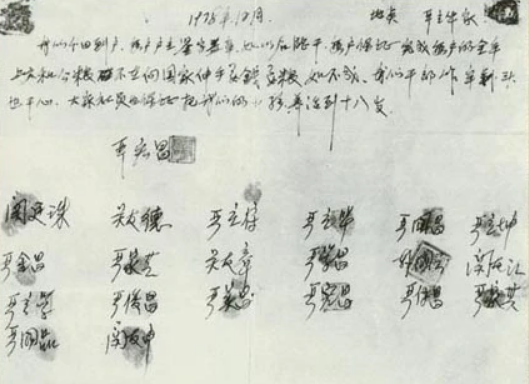 1978年12月 地点 严立华家
我们分田到户,每户户主签字盖章,如以后能干,每户保证完成每户的全年
上交和公粮,不在向国家伸手要钱要粮,如不成,我们干部作牢刹头
也干心,大家社员也保证把我们的小孩养活到十八岁。
严宏昌
关廷珠 关友德 严立符 严立华 严国昌 严立坤
严金昌 严家芝 关友章 严学昌 韩国云 关友江
严立学 严俊昌 严美昌 严宏昌 严付昌 严家其
严国品 关友申